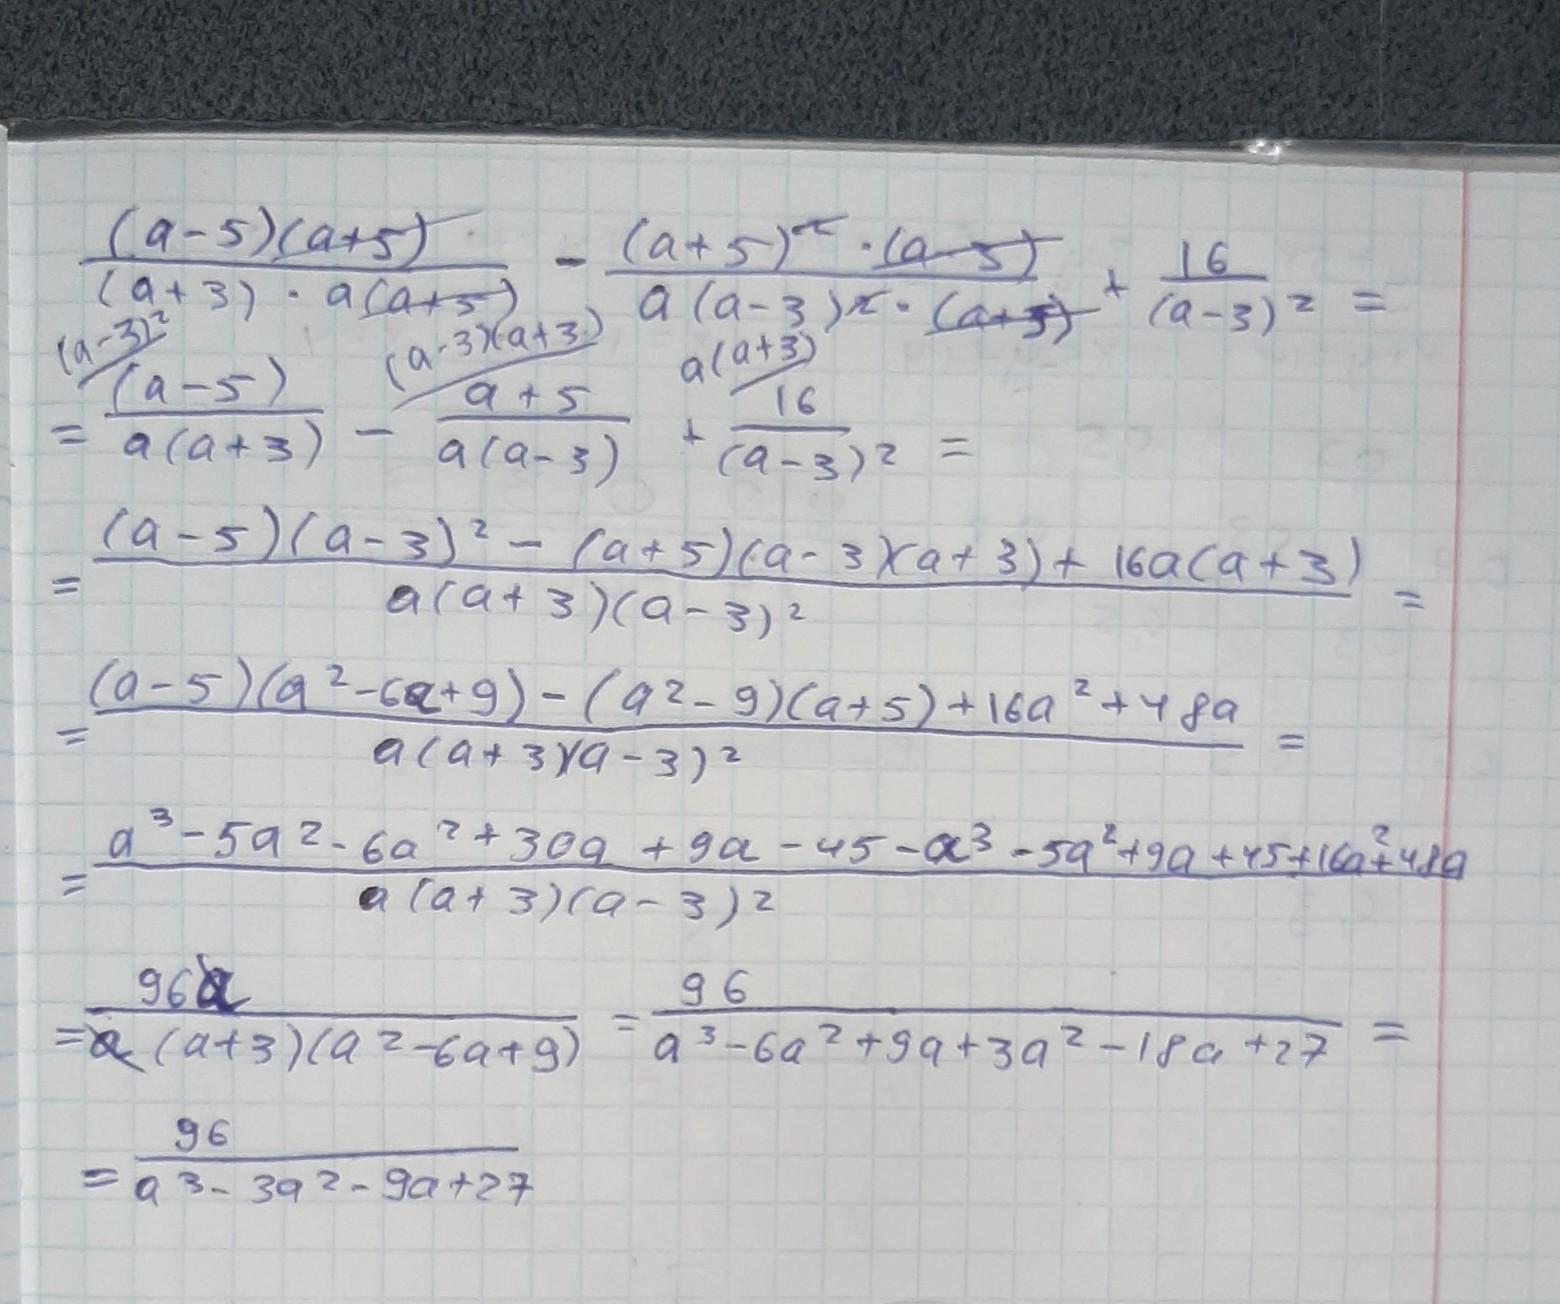 (a-5)(a+5) / (a+3)·a(a+5) - (a+5)²·(a-5) / a(a-3)²·(a+5) + 16 / (a-3)² =
(a-3)² (a-3)(a+3) a(a+3)
= (a-5) / a(a+3) - a+5 / a(a-3) + 16 / (a-3)² =
= (a-5)(a-3)² - (a+5)(a-3)(a+3) + 16a(a+3) / a(a+3)(a-3)² =
= (a-5)(a²-6a+9) - (a²-9)(a+5) + 16a² + 48a / a(a+3)(a-3)² =
= a³ - 5a² - 6a² + 30a + 9a - 45 - a³ - 5a² + 9a + 45 + 16a² + 48a / a(a+3)(a-3)²
= 96a / a(a+3)(a²-6a+9) = 96 / a³ - 6a² + 9a + 3a² - 18a + 27 =
= 96 / a³ - 3a² - 9a + 27